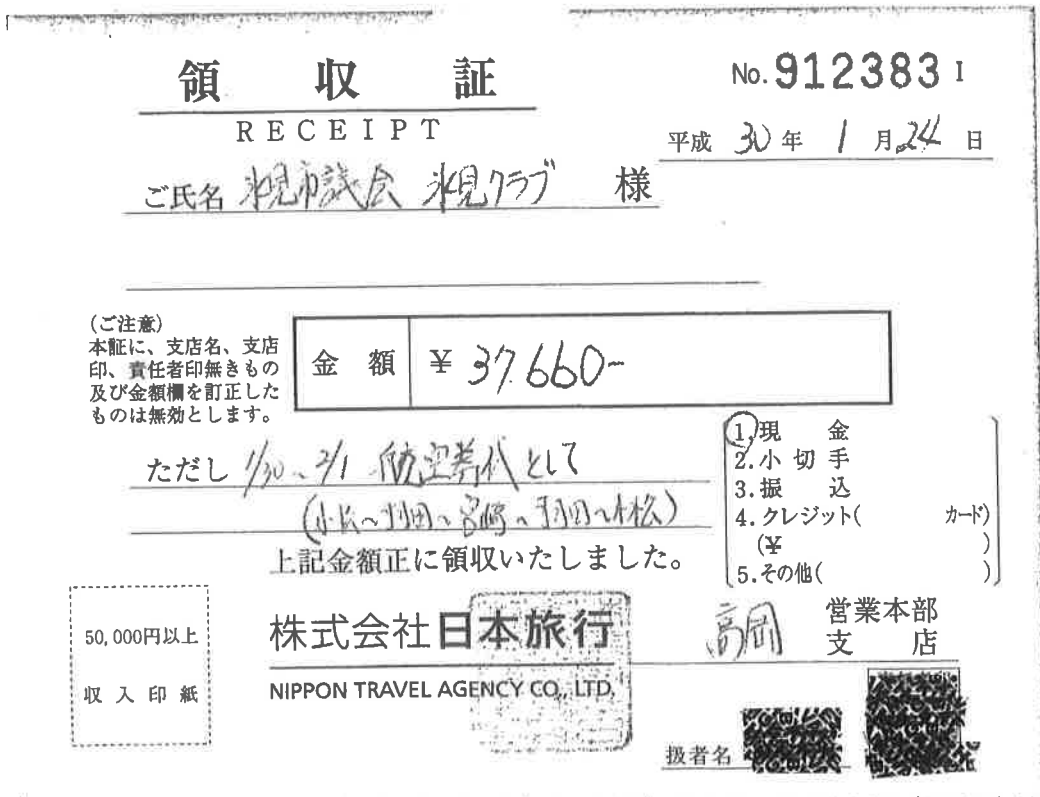 領収証
No.912383 I
RECEIPT
平成 30年 1月24日
ご氏名 氷見市議会 氷見クラブ 様
(ご注意)
本証に、支店名、支店
印、責任者印無きもの
及び金額欄を訂正した
ものは無効とします。
金額 ¥37,660-
ただし 1/30~2/1 航空券代として
(小松~羽田~宮崎~羽田~小松)
上記金額正に領収いたしました。
1.現金
2.小切手
3.振込
4.クレジット( カード)
(¥ )
5.その他( )
50,000円以上
収入印紙
株式会社日本旅行
NIPPON TRAVEL AGENCY CO., LTD.
高岡 営業本部
支店
扱者名